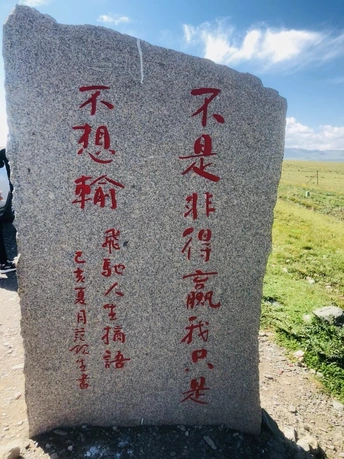 不是非得赢我只是
不想輸
飛馳人生摘語
己亥夏月范羽生書